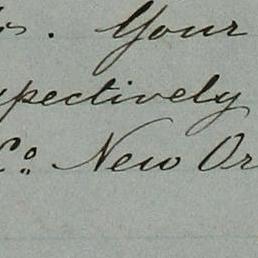 s. Your
spectively
Co. New Or